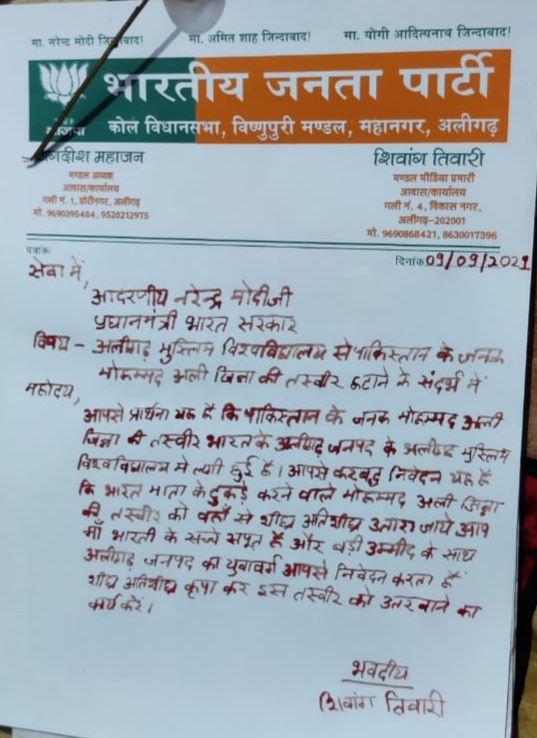 मा. नरेन्द्र मोदी जिन्दाबाद! मा. अमित शाह जिन्दाबाद! मा. योगी आदित्यनाथ जिन्दाबाद!
भारतीय जनता पार्टी
भाजपा
कोल विधानसभा, विष्णुपुरी मण्डल, महानगर, अलीगढ़
गदीश महाजन
मण्डल अध्यक्ष
आवास/कार्यालय
गली नं. 1, डोरीनगर, अलीगढ़
मो. 9690395484, 9520212975
शिवांग तिवारी
मण्डल मीडिया प्रभारी
आवास/कार्यालय
गली नं. 4, विकास नगर,
अलीगढ़-202001
मो. 9690868421, 8630017396
पत्रांक
दिनांक 09/09/2021
सेवा में,
आदरणीय नरेन्द्र मोदीजी
प्रधानमंत्री भारत सरकार
विषय - अलीगढ़ मुस्लिम विश्वविद्यालय से पाकिस्तान के जनक
मोहम्मद अली जिन्ना की तस्वीर हटाने के संदर्भ में
महोदय,
आपसे प्रार्थना यह है कि पाकिस्तान के जनक मोहम्मद अली
जिन्ना की तस्वीर भारत के अलीगढ़ जनपद के अलीगढ़ मुस्लिम
विश्वविद्यालय मे लगी हुई है। आपसे करबद्ध निवेदन यह है
कि भारत माता के टुकड़े करने वाले मोहम्मद अली जिन्ना
की तस्वीर को वहाँ से शीघ्र अतिशीघ्र उतारा जाये आप
माँ भारती के सच्चे सपूत है और बड़ी उम्मीद के साथ
अलीगढ़ जनपद का युवावर्ग आपसे निवेदन करता है
शीघ्र अतिशीघ्र कृपा कर इस तस्वीर को उतरवाने का
कार्य करें।
भवदीय
शिवांग तिवारी